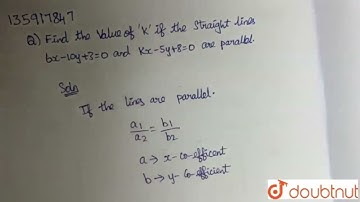 135917847
Q) Find the Value of 'K' if the Straight lines
6x-10y+3=0 and Kx-5y+8=0 are parallel.
Soln
If the lines are parallel.
a1/a2 = b1/b2
a → x-co-efficent
b → y-Co-efficient
doubtnut